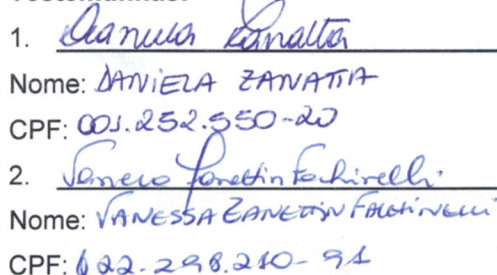 Testemunhas:
1. Daniela Zanatta
Nome: DANIELA ZANATTA
CPF: 001.252.550-20
2. Vanessa Zanettin Fachinelli
Nome: VANESSA ZANETTIN FACHINELLI
CPF: 022.298.210-91